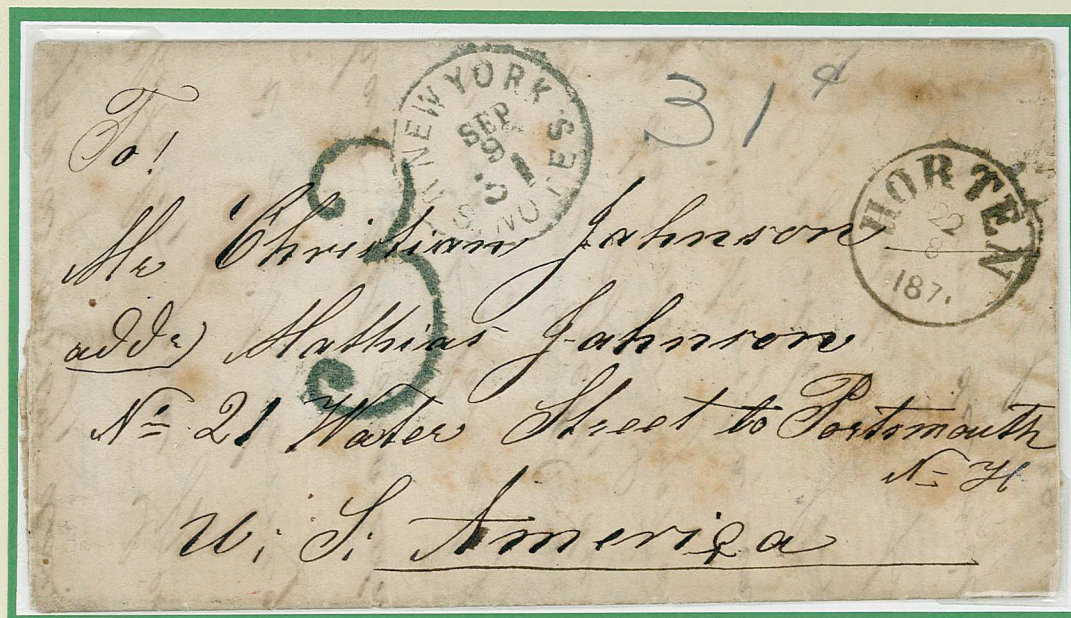 To!
NEW YORK
SEP
9
31 ¢
HORTEN
22
8
187.
3
Mr Christian Jahnson
adds) Mathias Jahnson
No 21 Water Street to Portsmouth
N= H
U: S: America